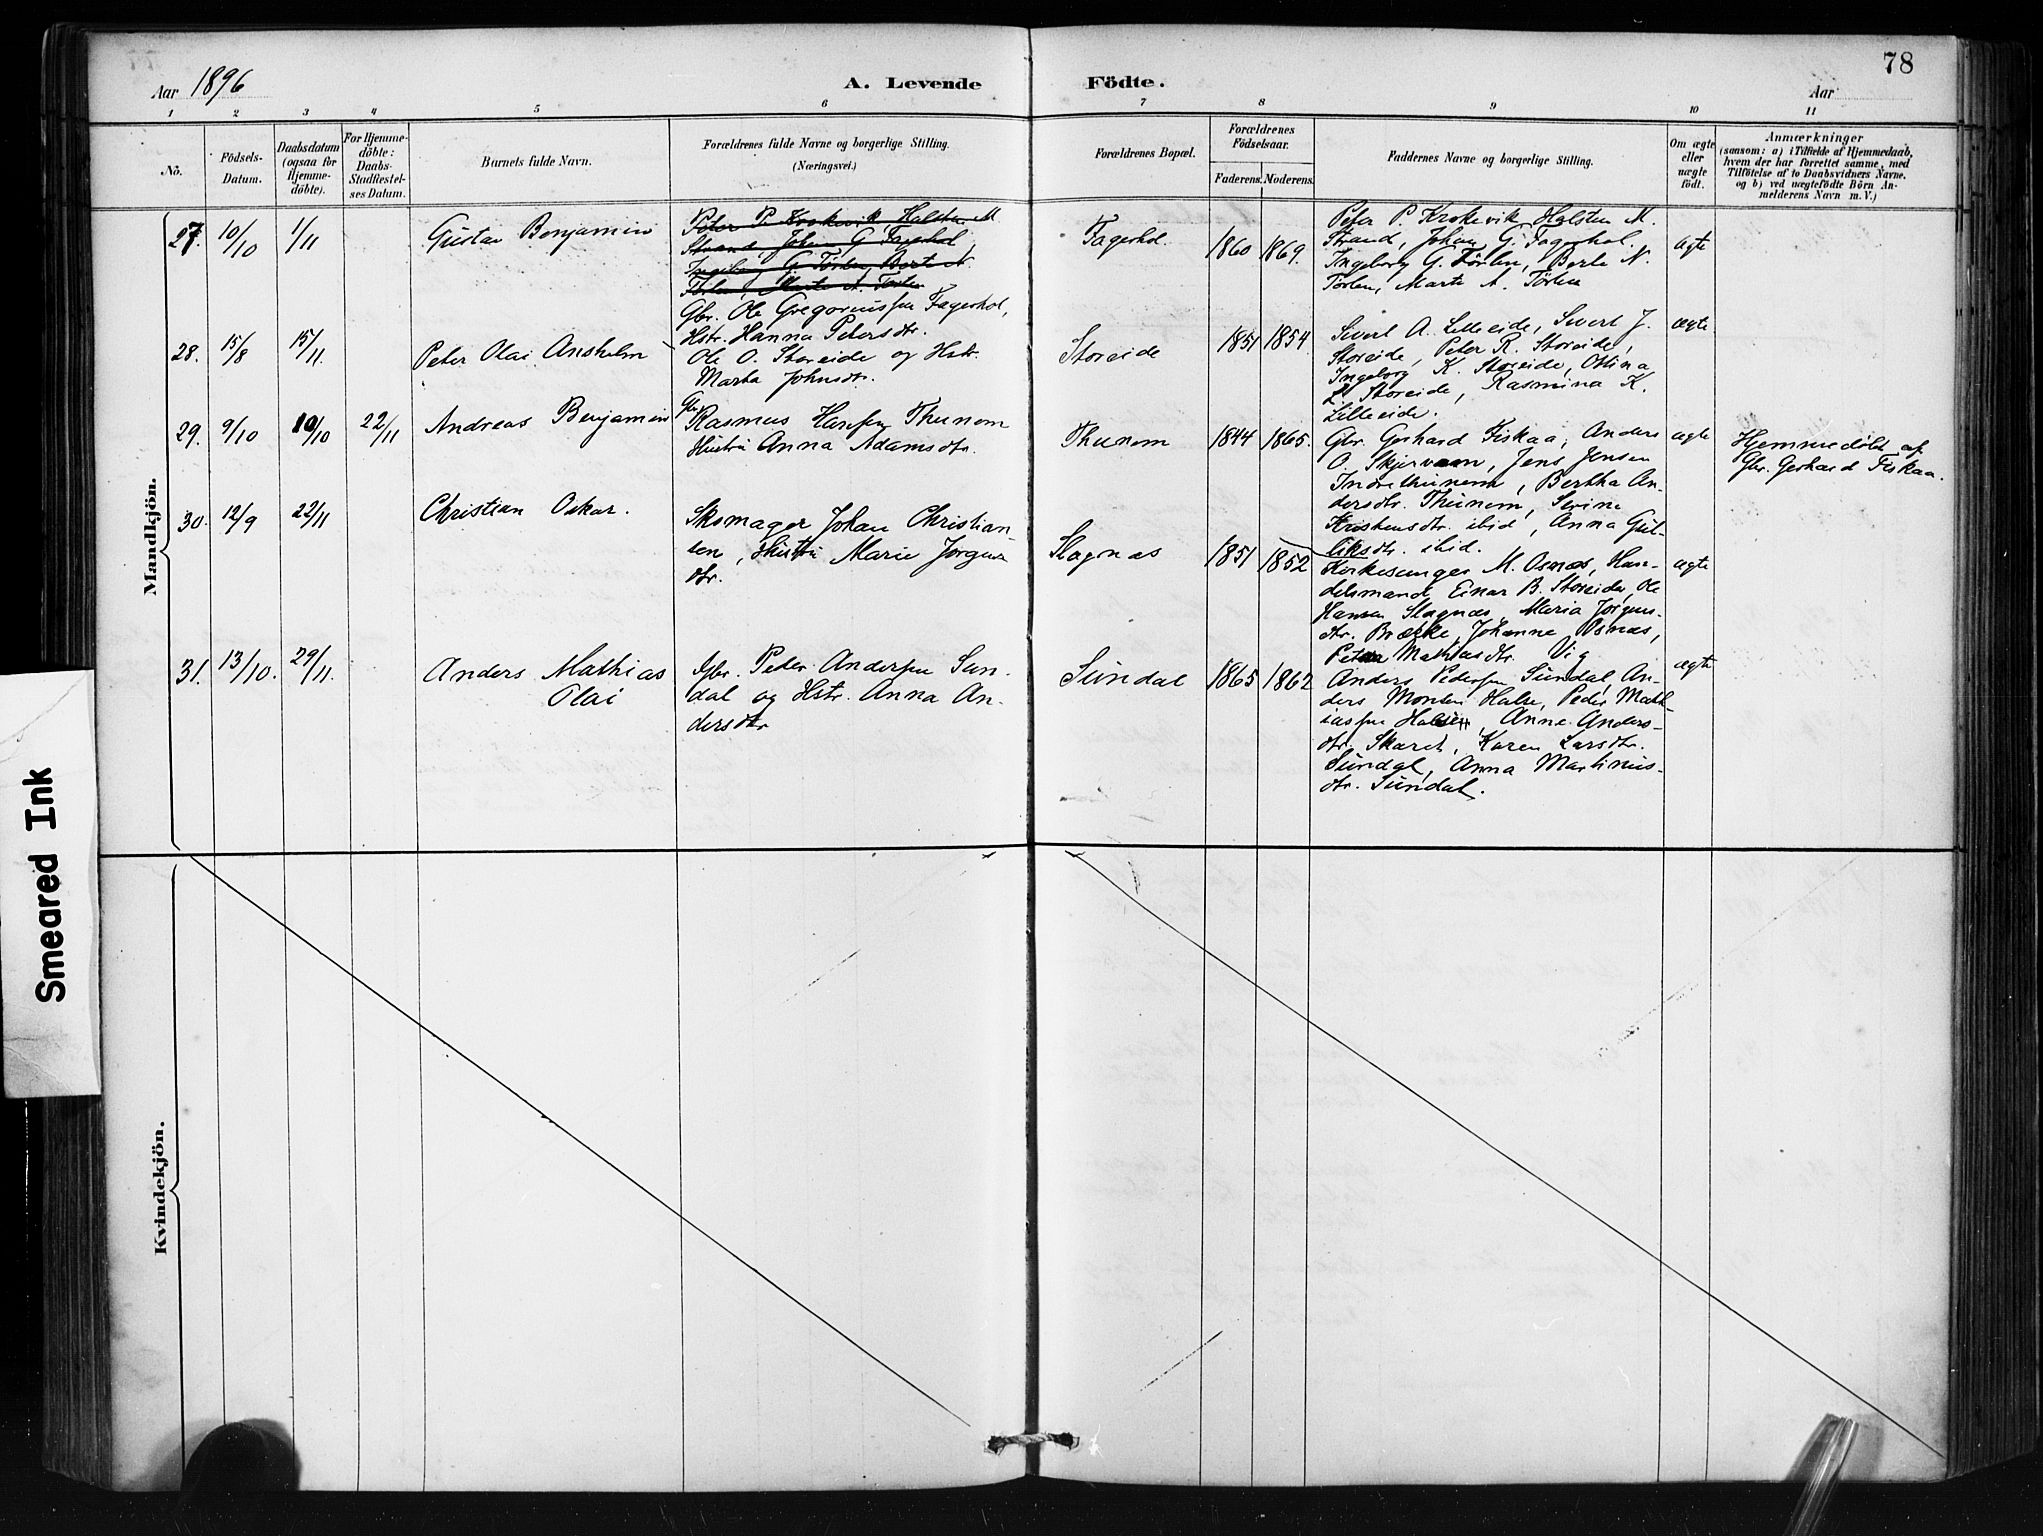 78
Aar 1896
A. Levende
Födte.
Aar
1 2 3 4 5 6 7 8 9 10 11
No.
Födsels-
Datum.
Daabsdatum
(ogsaa for
Hjemme-
döbte).
For Hjemme-
döbte:
Daabs-
Stadfæstel-
ses Datum.
Barnets fulde Navn.
Forældrenes fulde Navne og borgerlige Stilling.
(Næringsvei.)
Forældrenes Bopæl.
Forældrenes
Födselsaar.
Faderens. Moderens.
Faddernes Navne og borgerlige Stilling.
Om ægte
eller
uægte
födt.
Anmærkninger
(saasom: a) i Tilfælde af Hjemmedaab,
hvem der har forrettet samme, med
Tilföielse af to Daabsvidners Navne,
og b) ved uægtefödte Börn An-
melderens Navn m. V.)
Mandkjön.
27. 10/10 1/11 Gustav Benjamin
Peter P. Krokevik Halsten M.
Strand, Johan G. Fagerhol
Ingeborg G. Førlen, Berte N.
Førlen, Marte A. Førlen
Gbr. Ole Gregoriussen Fagerhol,
Hstr. Hanna Petersdtr.
Fagerhol. 1860 1869.
Peter P. Krokevik Halsten M.
Strand, Johan G. Fagerhol.
Ingeborg G. Førlen, Berte N.
Førlen, Marte A. Førlen
ægte
28. 15/8 15/11. Peter Olai Ansholm
Ole O. Storeide og Hstr.
Marta Johnsdtr.
Storeide 1851 1854
Sivert A. Lilleeide, Sivert J.
Storeide, Peter R. Storeide,
Ingeborg K. Storeide, Oltina
L. Storeide, Rasmina K.
Lilleeide.
ægte
29. 9/10 10/10 22/11 Andreas Benjamin
Gbr. Rasmus Hansen Thunem
Hustru Anna Adamsdtr.
Thunem 1844 1865.
Gbr. Gerhard Fiskaa, Anders
O. Skjervem, Jens Jensen
Indrethunem, Bertha An-
dersdtr. Thunem, Serine
Kristensdtr. ibid, Anna Gul-
liksdtr. ibid.
ægte
Hjemmedøbt af
Gbr. Gerhard Fiskaa.
30. 12/9 22/11 Christian Oskar.
Skomager Johan Christian-
sen, Hustru Marie Jørgens
dtr.
Slagnæs 1851 1852
Kirkesanger M. Osnæs, Han-
delsmand Einar B. Storeide, Ole
Hansen Slagnæs, Maria Jørgens-
dtr. Brække, Johanne Osnæs,
Petra Mathiasdtr. Vig
ægte
31. 13/10. 29/11. Anders Mathias
Olai
Gbr. Peder Andersen Sun-
dal og Hstr. Anna An-
dersdtr
Sundal 1865 1862
Anders Pedersen Sundal, An-
ders Monsen Halse, Peder Math-
iassen Halse, Anne Anders-
dtr. Skaret, Karen Larsdtr.
Sundal, Anna Martinus-
dtr. Sundal.
ægte
Kvindekjön.
Smeared Ink